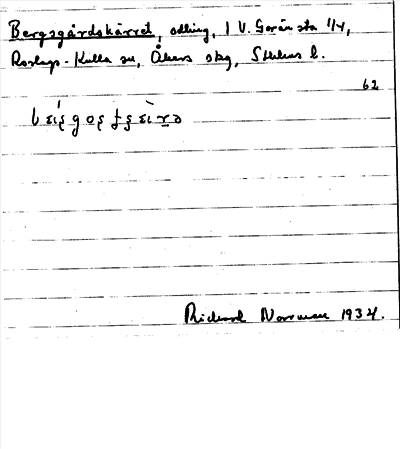 Bergsgårdskärret, odling, 1 V. Görånsta 1/4,
Roslags-Kulla sn, Åkers skg, Sthlms l.
62
Richard Norrman 1934.